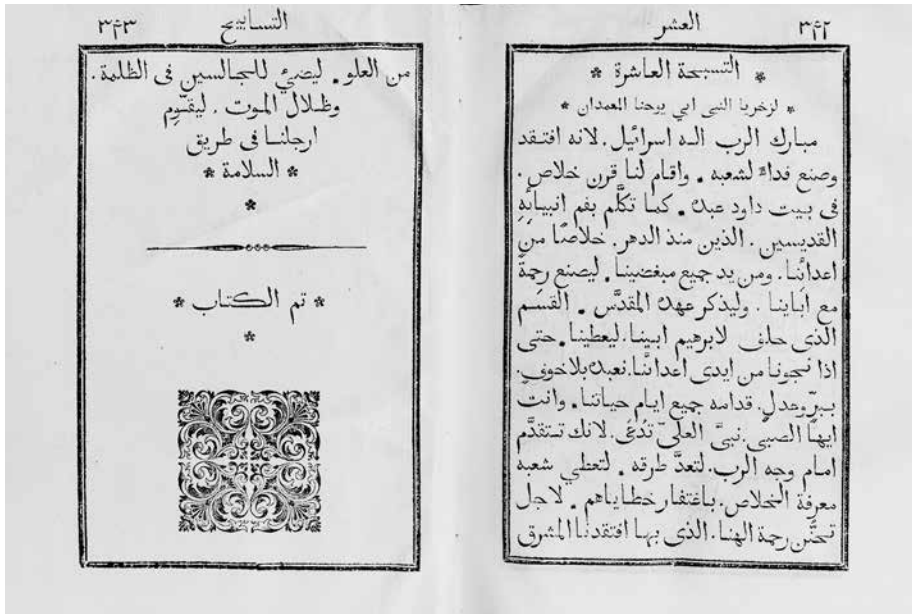 ٣٤٢ العشر
* التسبحة العاشرة *
* لزخريا النبى ابي يوحنا المعمدان *
مبارك الرب الـه اسرائيل. لانه افتـقد
وصنع فداءً لشعبه . واقام لنا قرن خلاص .
فى بيت داود عبده . كما تكلَّم بفم انبيـايِهِ
القديسين . الذين منذ الدهر. خلاصًا من
اعدائِنا. ومن يد جميع مبغضينا. ليصنع رحمةً
مع اباينا . وليذكر عهده المقدَّس . القسَم
الذى حلف لابرهيم ابينا. ليعطينا. حتى
اذا نجونا من ايدى اعدائنا. نعبده بلا خوفٍ.
ببرٍّ وعدلٍ. قدامه جميع ايام حياتنا. وانت
ايهـا الصبى. نبىَّ العلىّ تُدْعَى. لانك تـتقدَّم
امام وجه الرب. لتعدَّ طرقه . لتعطي شعبه
معرفة الخلاص. باغتفار خطاياهم . لاجل
تحنُّن رحمة الهنا. الذى بها افتقدنا المشرق
التسابيح ٣٤٣
من العلو . ليضئ للجالسين فى الظلمة .
وظلال الموت . ليقوّم
ارجلنـا فى طريق
* السلامة *
*
* تم الكتاب *
*